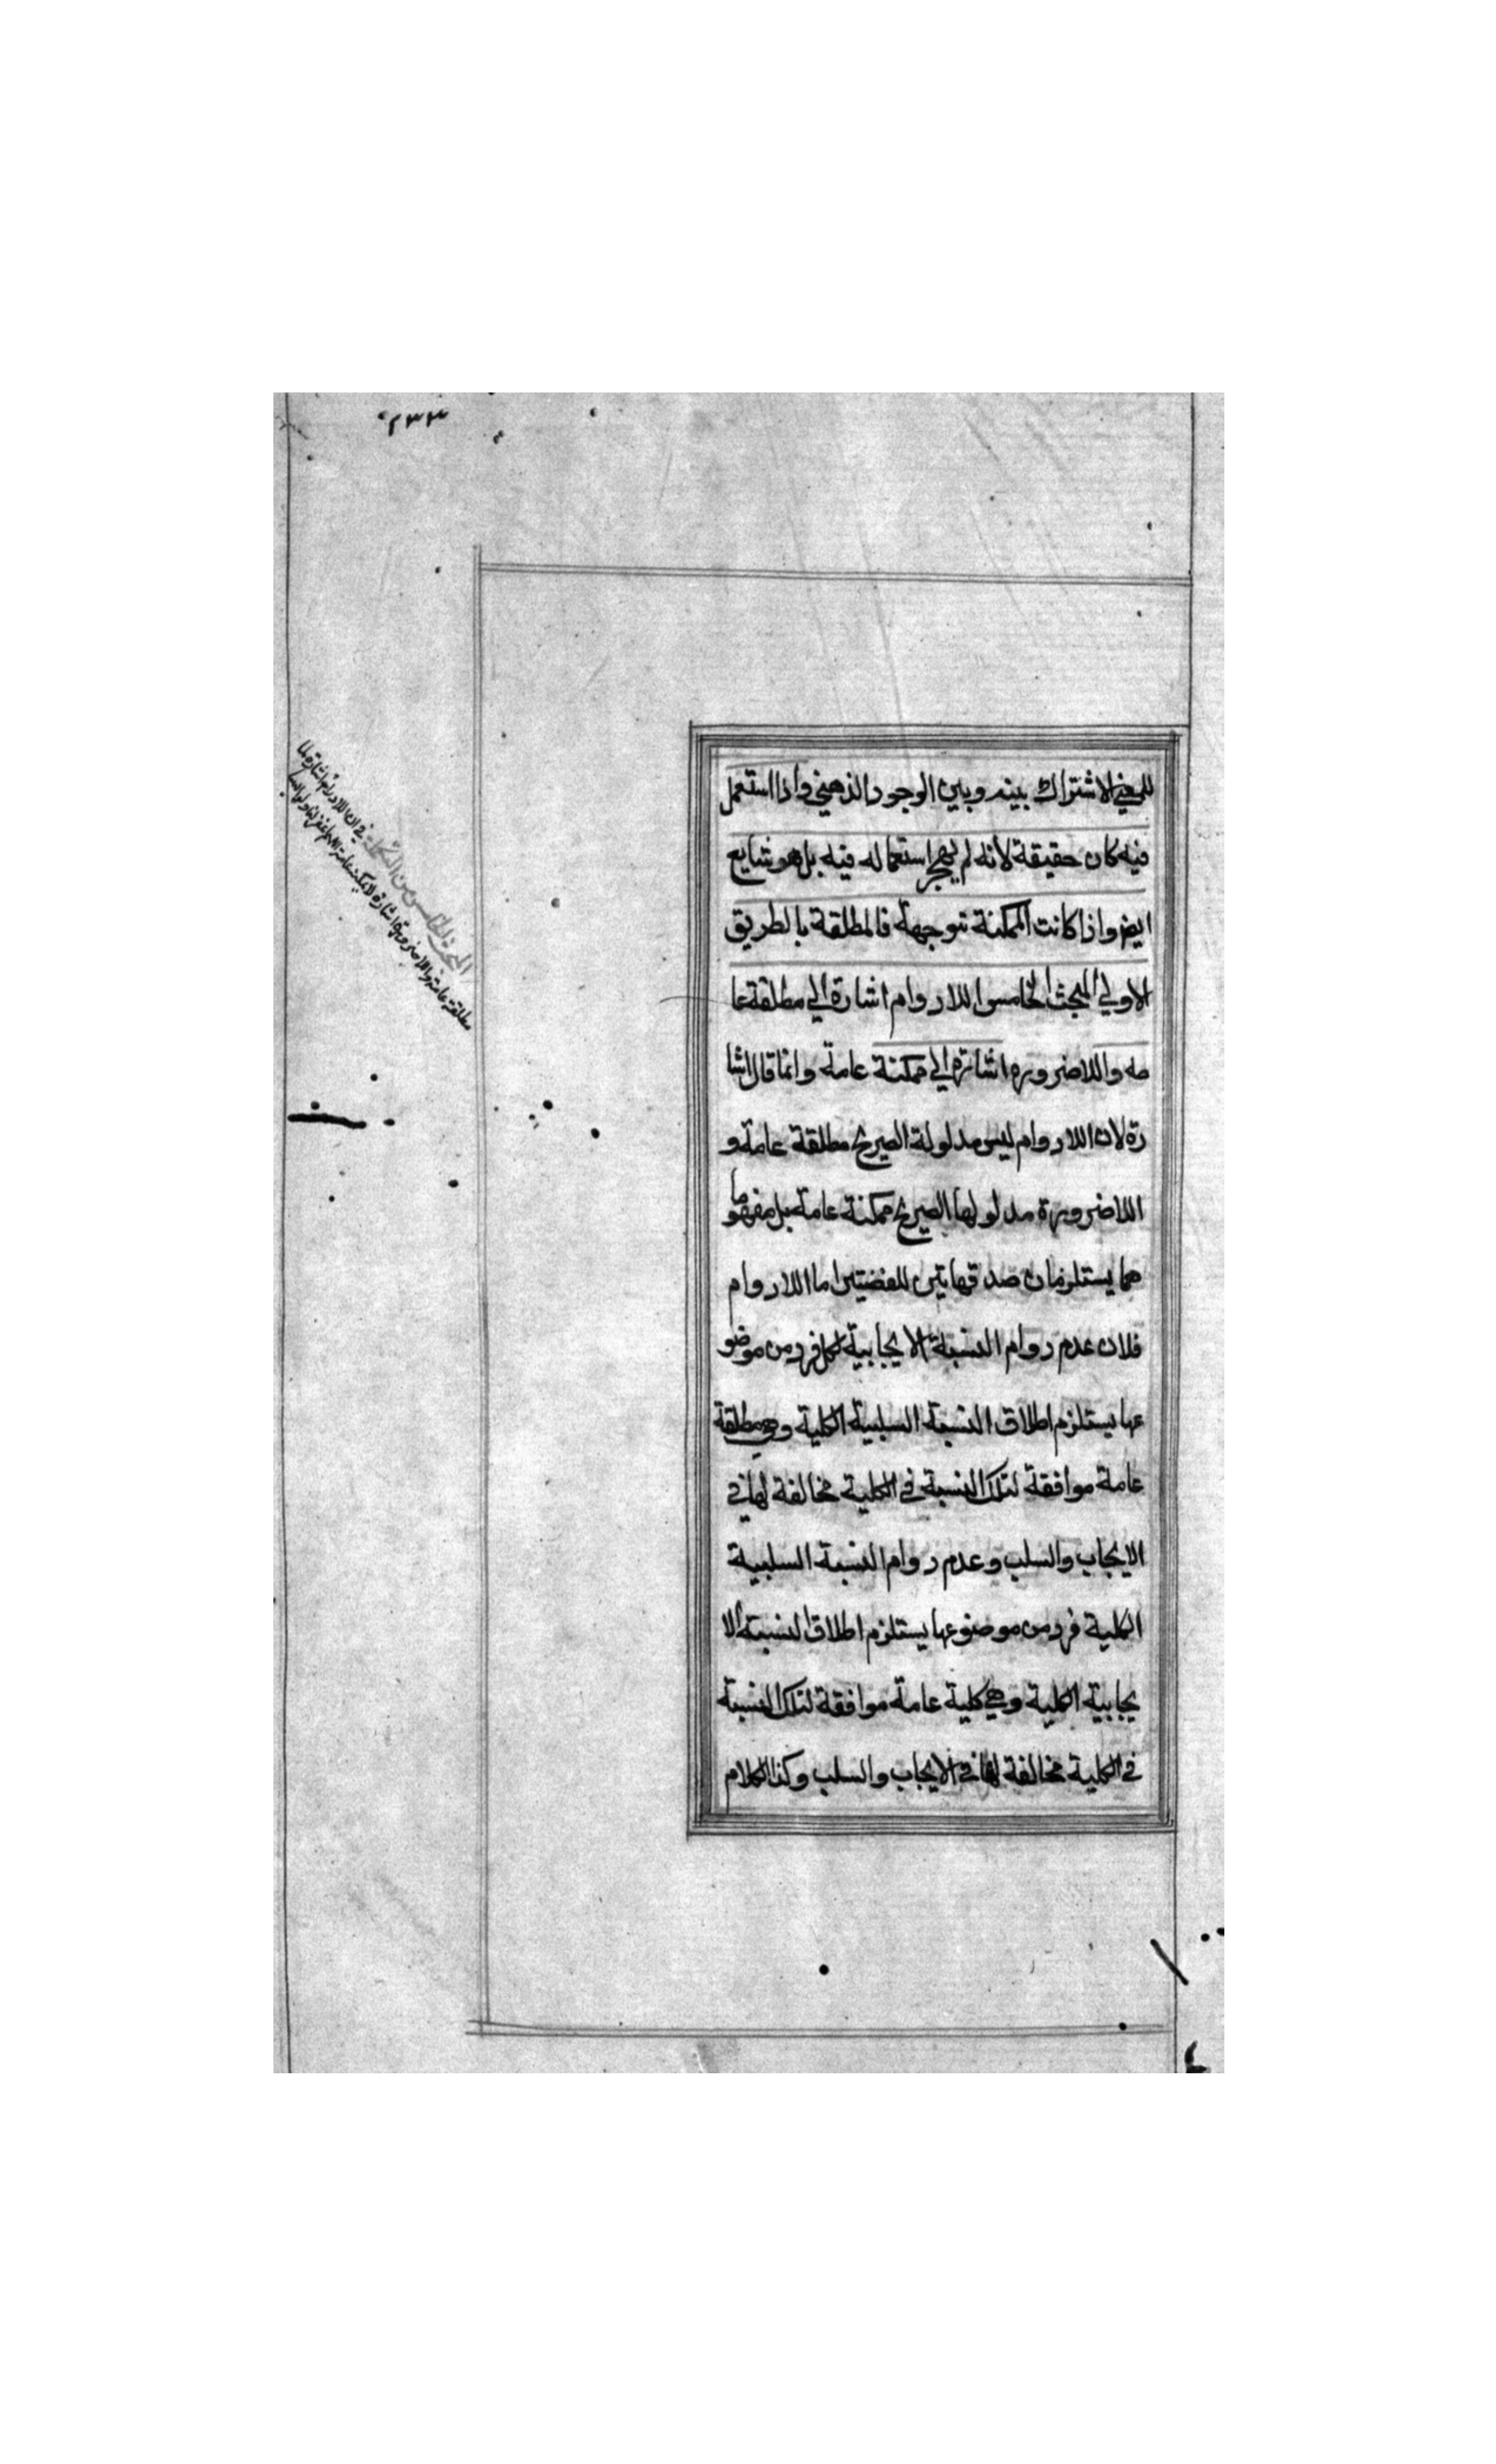 ٢٣٣
للمعني الاشتراك بينه وبين الوجود الذهني واذا استعمل
فيه كان حقيقة لانه لم يهجر استعماله فيه بل هو شايع
ايض واذا كانت الممكنة توجهة فالمطلقة بالطريق
الاولي المبحث الخامس اللادوام اشارة الي مطلقة عا
مه واللاضروره اشارة الي ممكنة عامة وانما قال اشا
رة لان اللادوام ليس مدلولة الصريح مطلقة عامة و
اللاضرورة مدلولها الصريح ممكنة عامة بل مفهوما
هما يستلزمان صدق هاتين للقضيتين اما اللادوام
فلان عدم دوام النسبة الايجابية لكل فرد من موضو
عها يستلزم اطلاق النسبة السلبية الكلية وهي مطلقة
عامة موافقة لتلك النسبة في الكلية مخالفة لها في
الايجاب والسلب وعدم دوام النسبة السلبية
الكلية فرد من موضوعها يستلزم اطلاق النسبة الا
يجابية الكلية وهي كلية عامة موافقة لتلك النسبة
في الكلية مخالفة لها في الايجاب والسلب وكذا الكلام
المبحث الخامس من في ان اللادوام اشارة
مطلقة عامة واللاضرورة اشارة